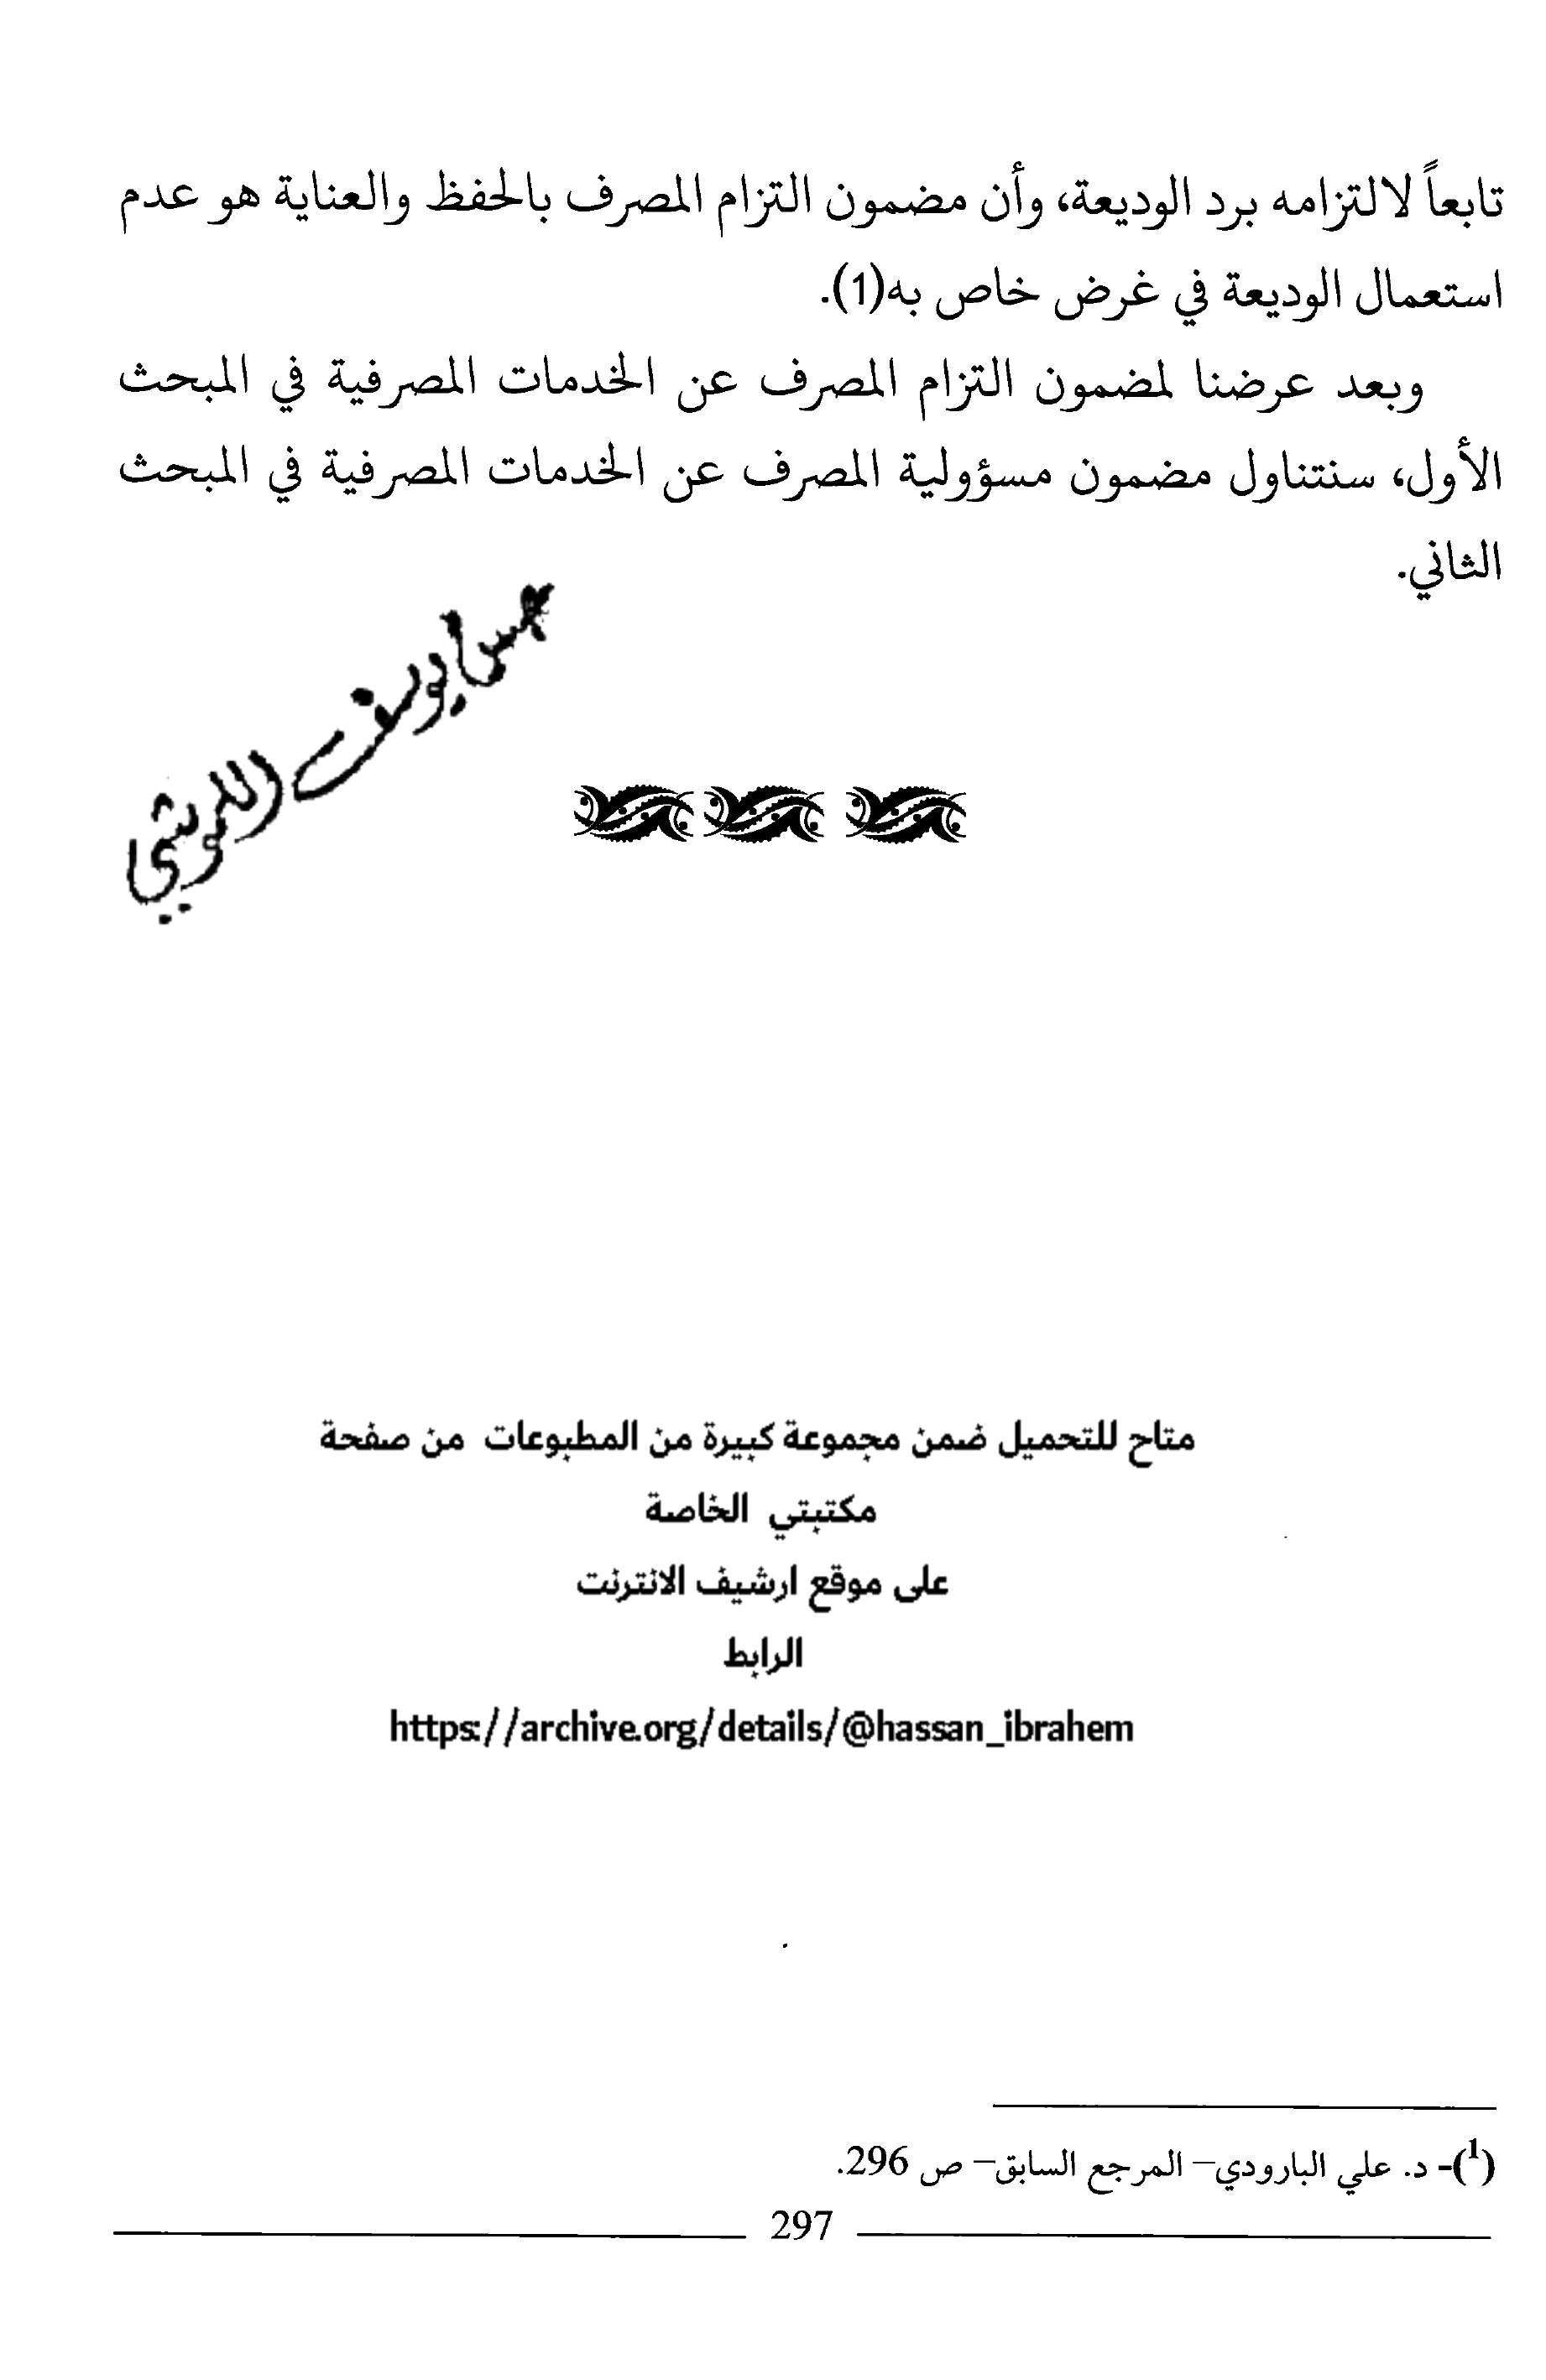 تابعاً لالتزامه برد الوديعة، وأن مضمون التزام المصرف بالحفظ والعناية هو عدم
استعمال الوديعة في غرض خاص به(1).
وبعد عرضنا لمضمون التزام المصرف عن الخدمات المصرفية في المبحث
الأول، سنتناول مضمون مسؤولية المصرف عن الخدمات المصرفية في المبحث
الثاني.
متاح للتحميل ضمن مجموعة كبيرة من المطبوعات من صفحة
مكتبتي الخاصة
على موقع ارشيف الانترنت
الرابط
https://archive.org/details/@hassan_ibrahem
(1)- د. علي البارودي– المرجع السابق– ص 296.
297